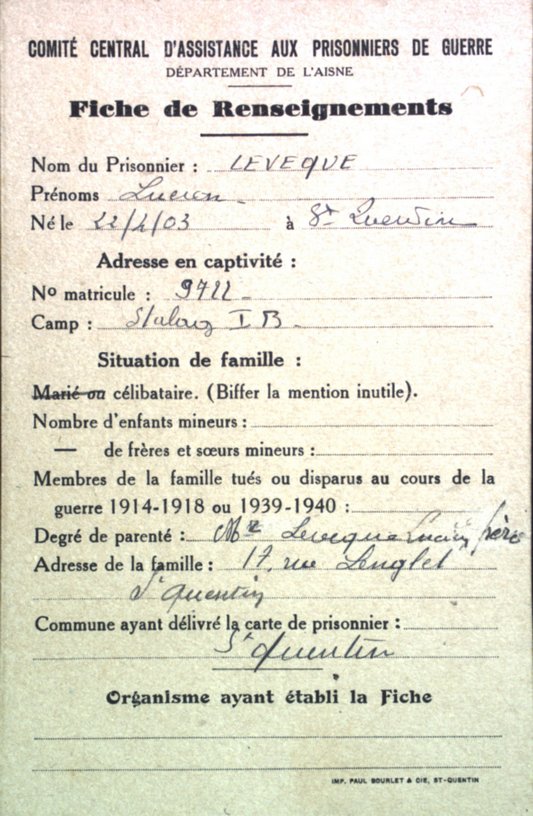 COMITÉ CENTRAL D'ASSISTANCE AUX PRISONNIERS DE GUERRE
DÉPARTEMENT DE L'AISNE
Fiche de Renseignements
Nom du Prisonnier : LEVEQUE
Prénoms Lucien
Né le 22/4/03 à St Quentin
Adresse en captivité :
No matricule : 9722
Camp : Stalag I B
Situation de famille :
Marié ou célibataire. (Biffer la mention inutile).
Nombre d'enfants mineurs :
— de frères et sœurs mineurs :
Membres de la famille tués ou disparus au cours de la
guerre 1914-1918 ou 1939-1940 :
Degré de parenté : Mr Leveque frère
Adresse de la famille : 17, rue Lenglet
St Quentin
Commune ayant délivré la carte de prisonnier :
St Quentin
Organisme ayant établi la Fiche
IMP. PAUL BOURLET & CIE, ST-QUENTIN